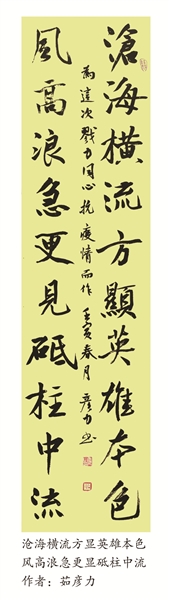 滄海橫流方顯英雄本色
風高浪急更見砥柱中流
為這次戮力同心抗疫情而作 壬寅春月 彦力书
沧海横流方显英雄本色
风高浪急更显砥柱中流
作者：茹彦力